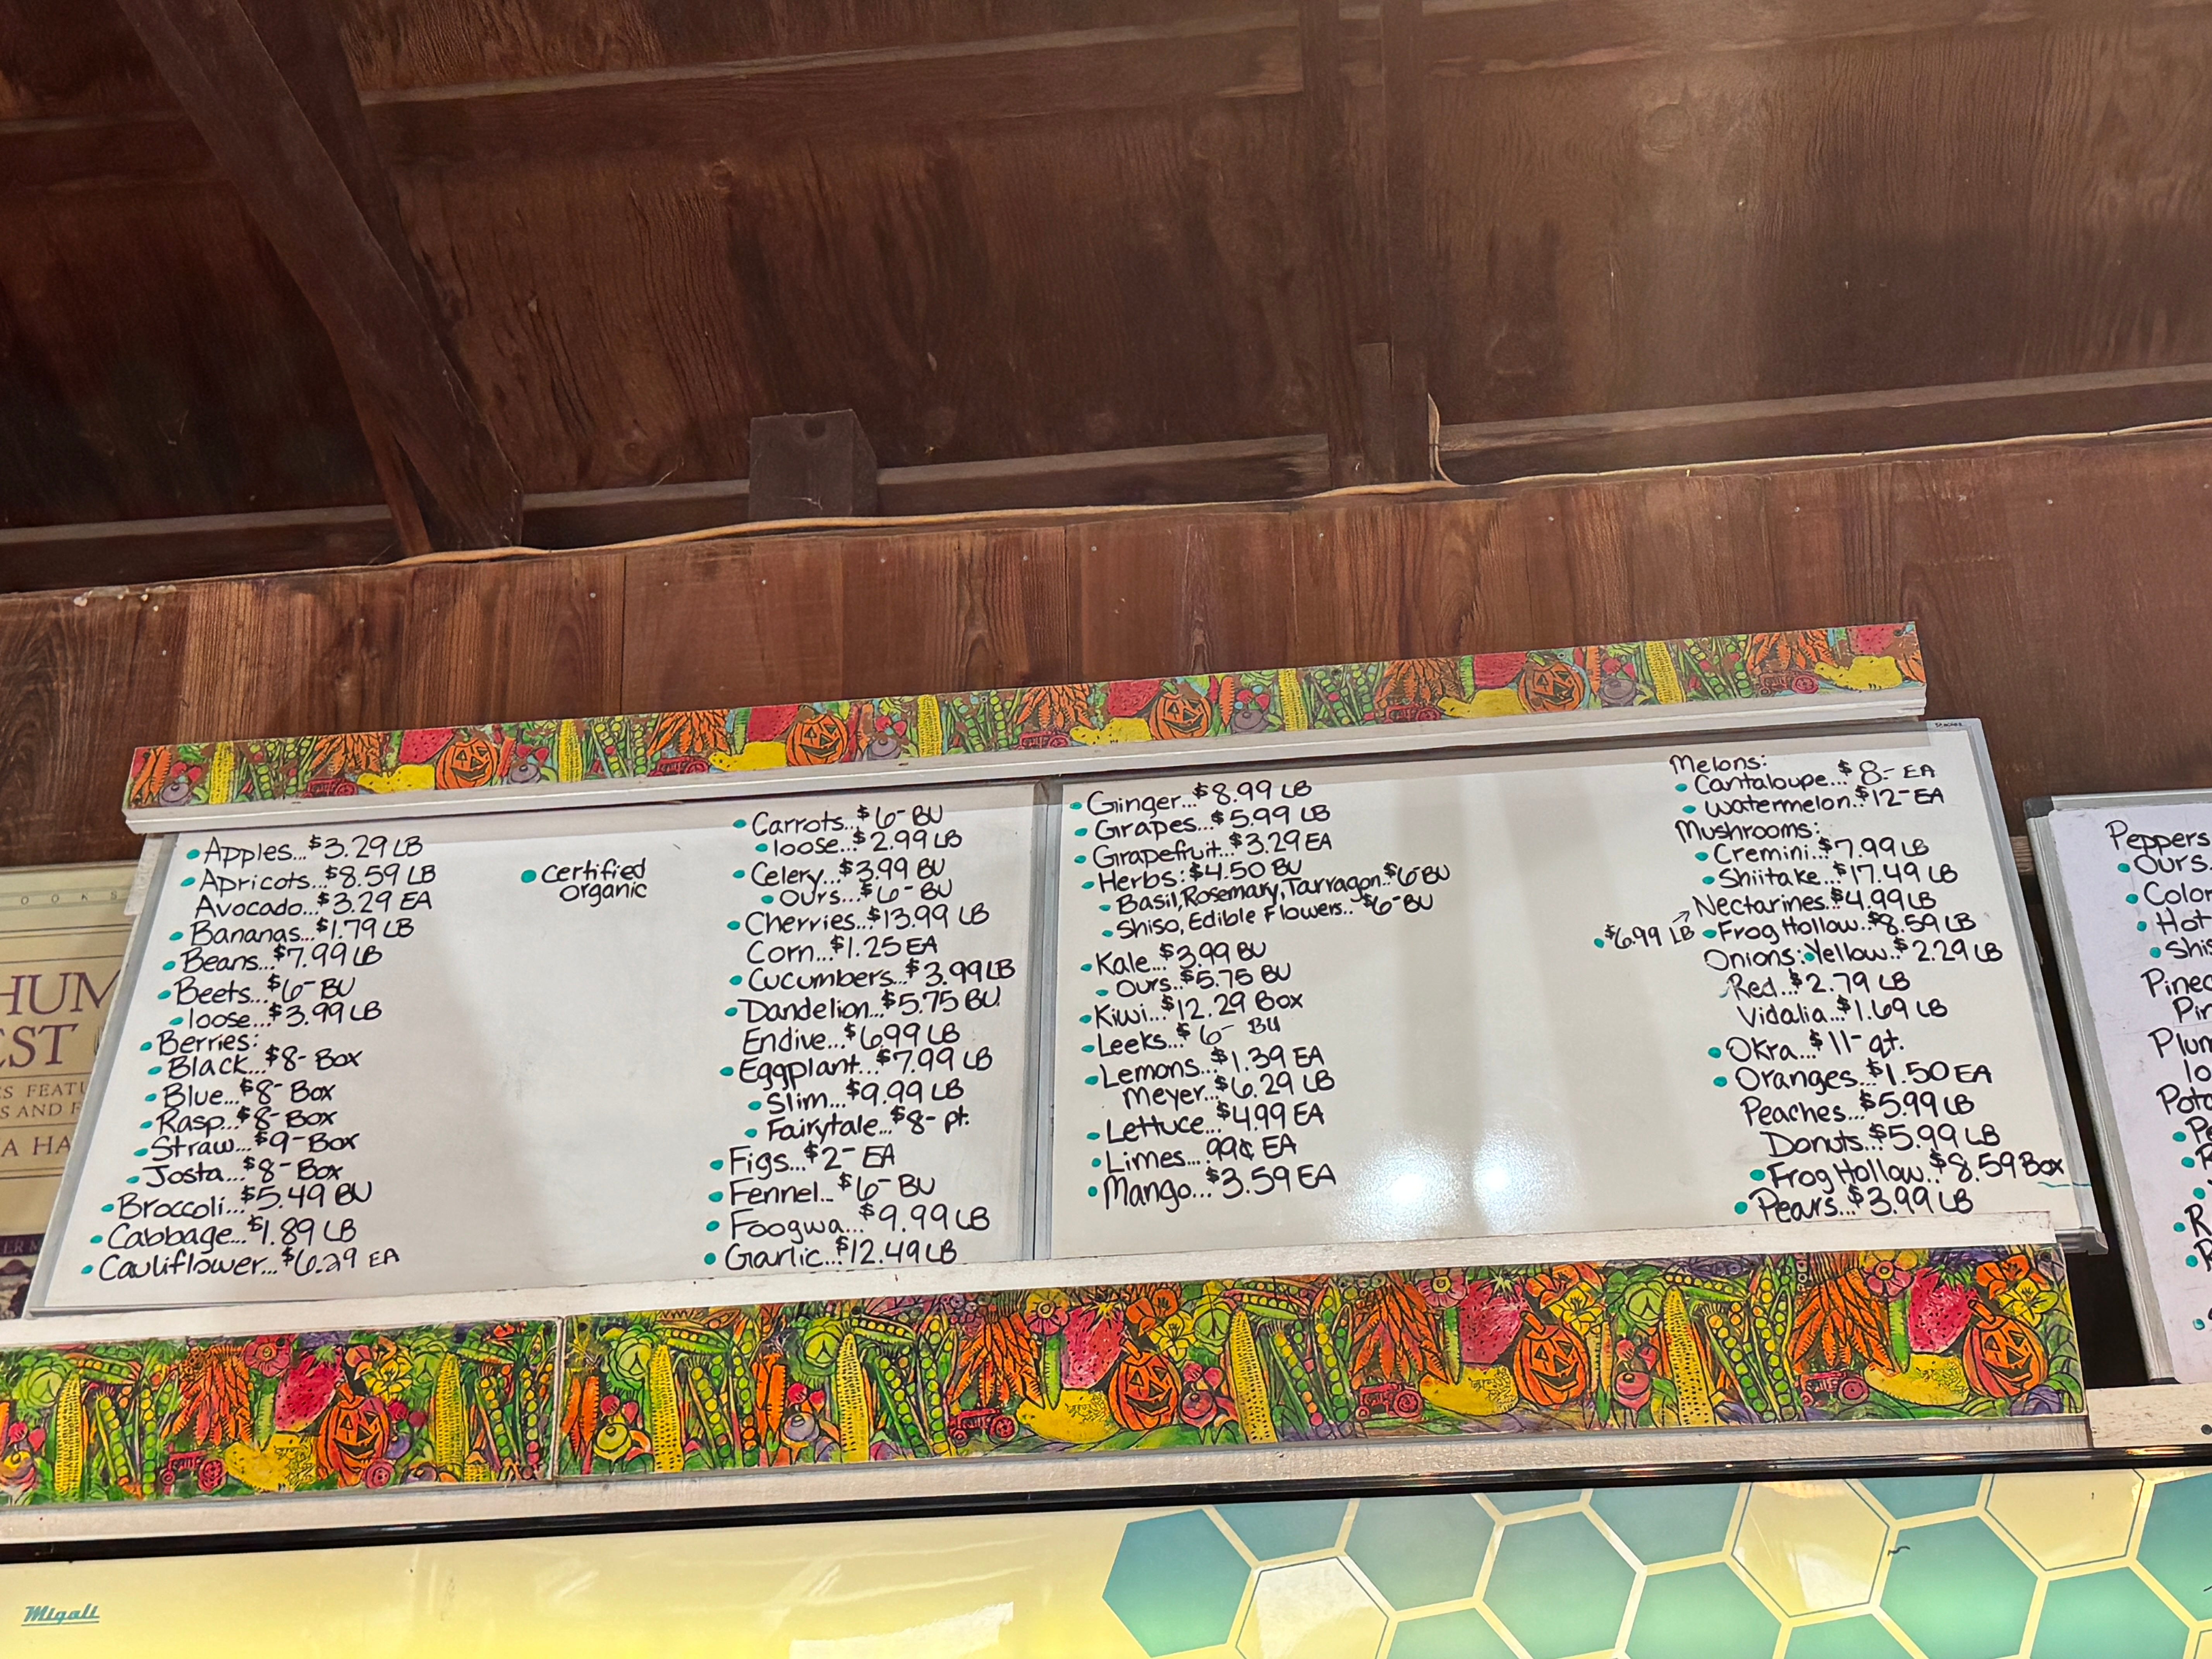 • Apples...$3.29 LB
• Apricots...$8.59 LB
Avocado...$3.29 EA
• Bananas...$1.79 LB
• Beans...$7.99 LB
• Beets...$6- BU
• loose...$3.99 LB
• Berries:
• Black...$8- Box
• Blue...$8- Box
• Rasp...$8- Box
• Straw...$9- Box
• Josta...$8- Box
• Broccoli...$5.49 BU
• Cabbage...$1.89 LB
• Cauliflower...$6.29 EA
• certified
organic
• Carrots...$6- BU
• loose...$2.99 LB
• Celery...$3.99 BU
• Ours...$6- BU
• Cherries...$13.99 LB
Corn...$1.25 EA
• Cucumbers...$3.99 LB
• Dandelion...$5.75 BU.
Endive...$6.99 LB
• Eggplant...$7.99 LB
• Slim...$9.99 LB
• Fairytale...$8- pt.
• Figs...$2- EA
• Fennel...$6- BU
• Foogwa...$9.99 LB
• Garlic...$12.49 LB
• Ginger...$8.99 LB
• Grapes...$5.99 LB
• Grapefruit...$3.29 EA
• Herbs: $4.50 BU
• Basil, Rosemary, Tarragon..$6- BU
• Shiso, Edible Flowers..$6- BU
• Kale...$3.99 BU
• Ours...$5.75 BU
• Kiwi...$12.29 Box
• Leeks...$6- BU
• Lemons...$1.39 EA
Meyer...$6.29 LB
• Lettuce...$4.99 EA
• Limes...99¢ EA
• Mango...$3.59 EA
Melons:
• Cantaloupe...$8- EA
• Watermelon..$12- EA
Mushrooms:
• Cremini...$7.99 LB
• Shiitake...$17.49 LB
Nectarines..$4.99 LB
• $6.99 LB
• Frog Hollow..$8.59 LB
Onions: • Yellow..$2.29 LB
Red...$2.79 LB
Vidalia...$1.69 LB
• Okra...$11- qt.
• Oranges...$1.50 EA
Peaches...$5.99 LB
Donuts..$5.99 LB
• Frog Hollow..$8.59 Box
• Pears...$3.99 LB
Peppers
• Ours
• Color
• Hot
• Shis
Plum
Migali